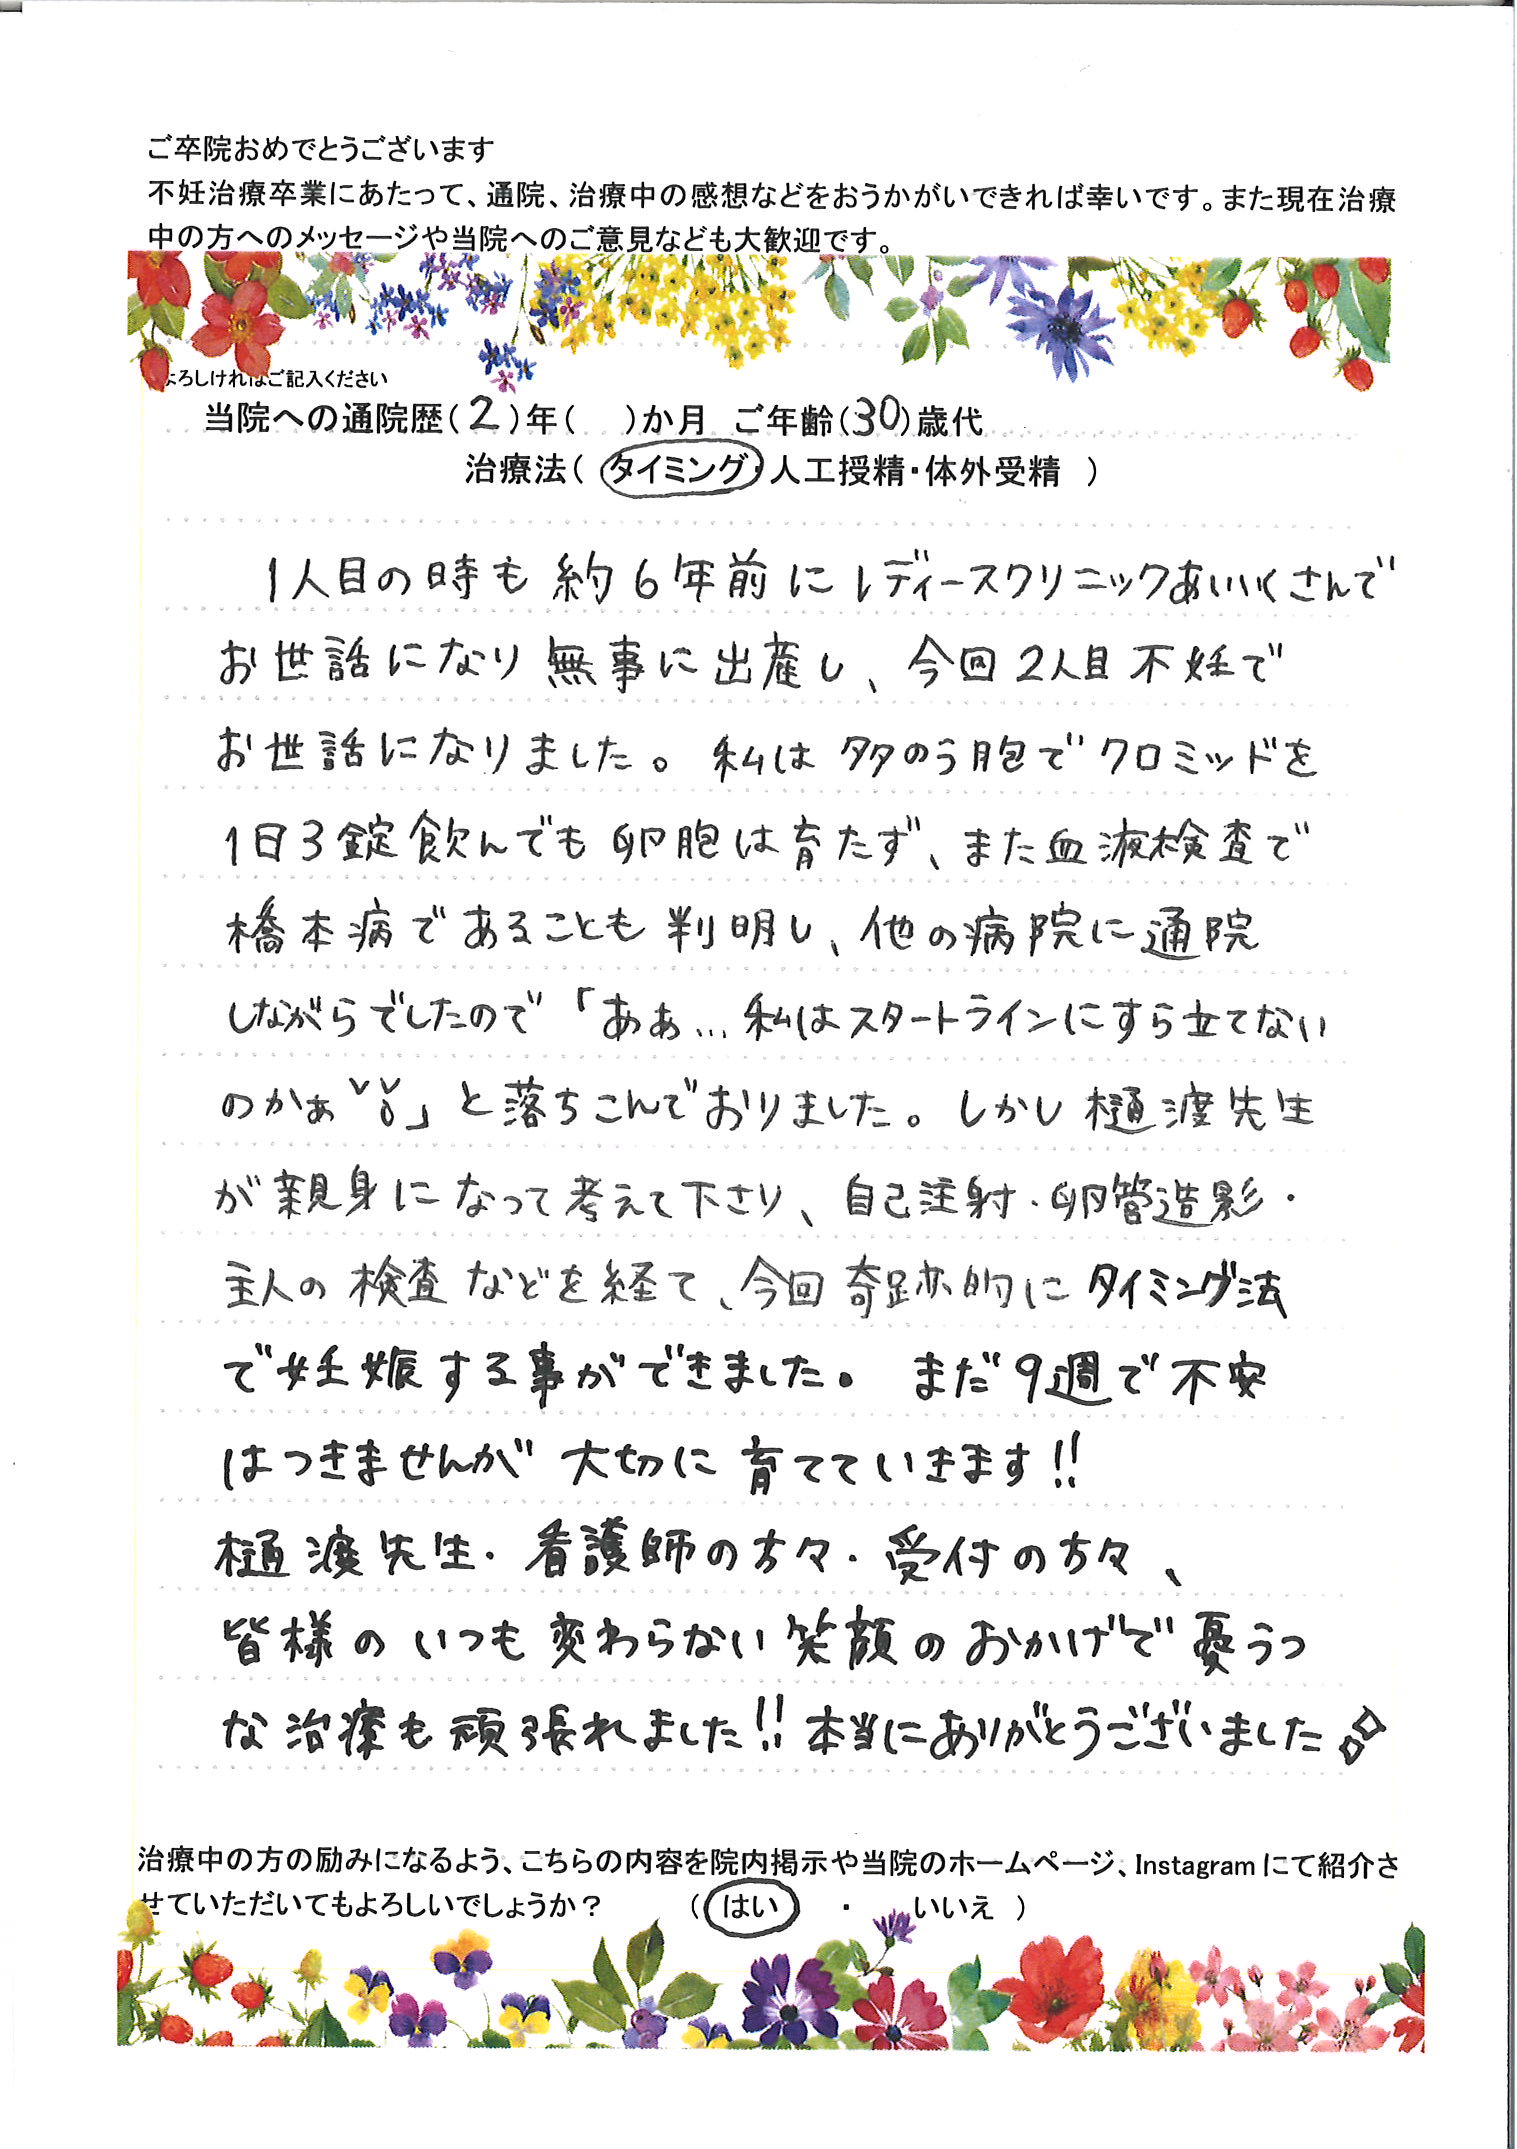 ご卒院おめでとうございます
不妊治療卒業にあたって、通院、治療中の感想などをおうかがいできれば幸いです。また現在治療
中の方へのメッセージや当院へのご意見なども大歓迎です。
よろしければご記入ください
当院への通院歴(2)年( )か月 ご年齢(30)歳代
治療法( タイミング・人工授精・体外受精 )
1人目の時も約6年前にレディースクリニックあいいくさんで
お世話になり無事に出産し、今回2人目不妊で
お世話になりました。私は多のう胞でクロミッドを
1日3錠飲んでも卵胞は育たず、また血液検査で
橋本病であることも判明し、他の病院に通院
しながらでしたので「ああ…私はスタートラインにすら立てない
のかぁ」と落ちこんでおりました。しかし樋渡先生
が親身になって考えて下さり、自己注射・卵管造影・
主人の検査などを経て、今回奇跡的にタイミング法
で妊娠する事ができました。まだ9週で不安
はつきませんが大切に育てていきます!!
樋渡先生・看護師の方々・受付の方々、
皆様のいつも変わらない笑顔のおかげで憂うつ
な治療も頑張れました!!本当にありがとうございました
治療中の方の励みになるよう、こちらの内容を院内掲示や当院のホームページ、Instagramにて紹介さ
せていただいてもよろしいでしょうか? (はい ・ いいえ )